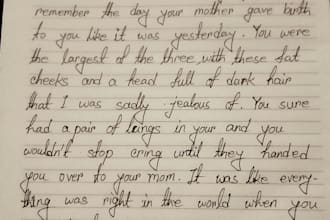 remember the day your mother gave birth
to you like it was yesterday. You were
the largest of the three, with these fat
cheeks and a head full of dark hair
that I was sadly jealous of. You sure
had a pair of lungs in your and you
wouldn't stop cring until they handed
you over to your mom. It was like every-
thing was right in the world when you